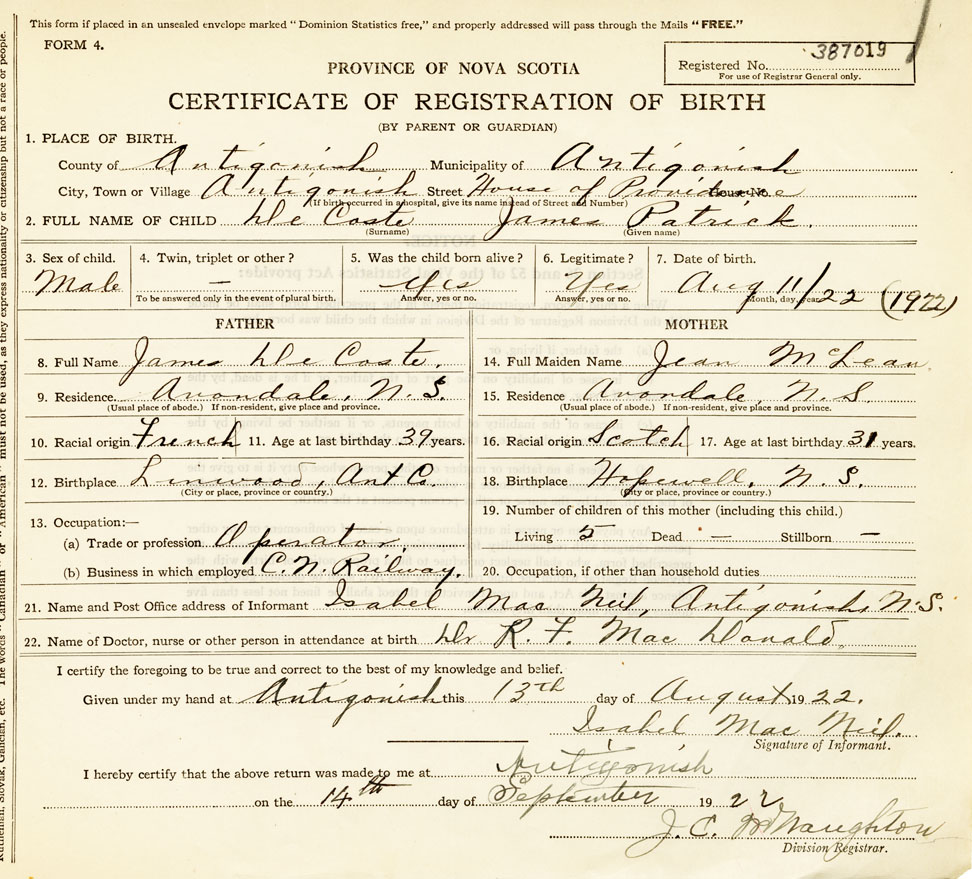 This form if placed in an unsealed envelope marked "Dominion Statistics free," and properly addressed will pass through the Mails "FREE."
FORM 4.
387019
Registered No.
For use of Registrar General only.
PROVINCE OF NOVA SCOTIA
CERTIFICATE OF REGISTRATION OF BIRTH
(BY PARENT OR GUARDIAN)
1. PLACE OF BIRTH.
County of Antigonish Municipality of Antigonish
City, Town or Village Antigonish Street House of Providence House No.
(If birth occurred in a hospital, give its name instead of Street and Number)
2. FULL NAME OF CHILD De Coste James Patrick.
(Surname) (Given name)
3. Sex of child. 4. Twin, triplet or other? 5. Was the child born alive? 6. Legitimate? 7. Date of birth.
Male — Yes Yes Aug 11/22 (1922)
To be answered only in the event of plural birth. Answer, yes or no. Answer, yes or no. Month, day, year.
FATHER MOTHER
8. Full Name James De Coste. 14. Full Maiden Name Jean McLean.
9. Residence Avondale, N.S. 15. Residence Avondale, N.S
(Usual place of abode.) If non-resident, give place and province. (Usual place of abode.) If non-resident, give place and province.
10. Racial origin French 11. Age at last birthday 39 years. 16. Racial origin Scotch 17. Age at last birthday 31 years.
12. Birthplace Linwood, Ant Co. 18. Birthplace Hopewell, N.S.
(City or place, province or country.) (City or place, province or country.)
19. Number of children of this mother (including this child.)
13. Occupation:—
(a) Trade or profession Operator. Living 5 Dead — Stillborn —
(b) Business in which employed C.N. Railway. 20. Occupation, if other than household duties
21. Name and Post Office address of Informant Isabel Mac Neil, Antigonish, N.S.
22. Name of Doctor, nurse or other person in attendance at birth Dr R. F. Mac Donald,
I certify the foregoing to be true and correct to the best of my knowledge and belief.
Given under my hand at Antigonish this 13th day of August 1922.
Isabel Mac Neil.
Signature of Informant.
I hereby certify that the above return was made to me at Antigonish
on the 14th day of September 1922
J. C. McNaughton
Division Registrar.
Ruthenian, Slovak, Galician, etc. The words "Canadian" or "American" must not be used, as they express nationality or citizenship but not a race or people.